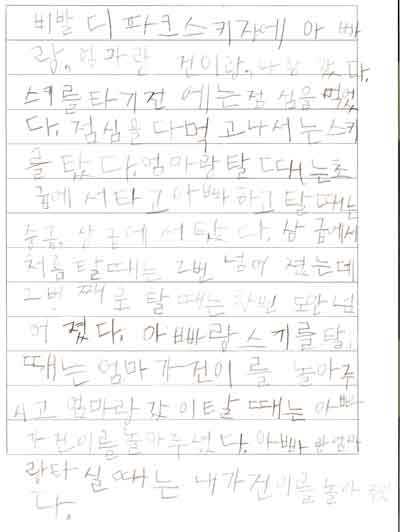 비발 디 파크스키장에 아 빠
랑. 엄마란 건이랑. 나랑 갔다.
스키를타기전 에는점 심을 먹었
다. 점심을다먹 고나서는스키
를 탔 다. 엄마랑탈 때는초
급에 서타고아빠하고 탈때는
중급, 상 급에 서 탔 다. 상 급에서
처름 탈때는 그번 넘어 졌는데
그번 째 로 탈 때는 한번 도안 넘
어 졌다. 아빠랑스키를탈
때는 엄마가건이 를 놀아주
시고 엄마랑 같이탈 때는 아빠
가건이를놀아주셨다. 아빠 엄마
랑타 실때는 내가건이를놀아
다.